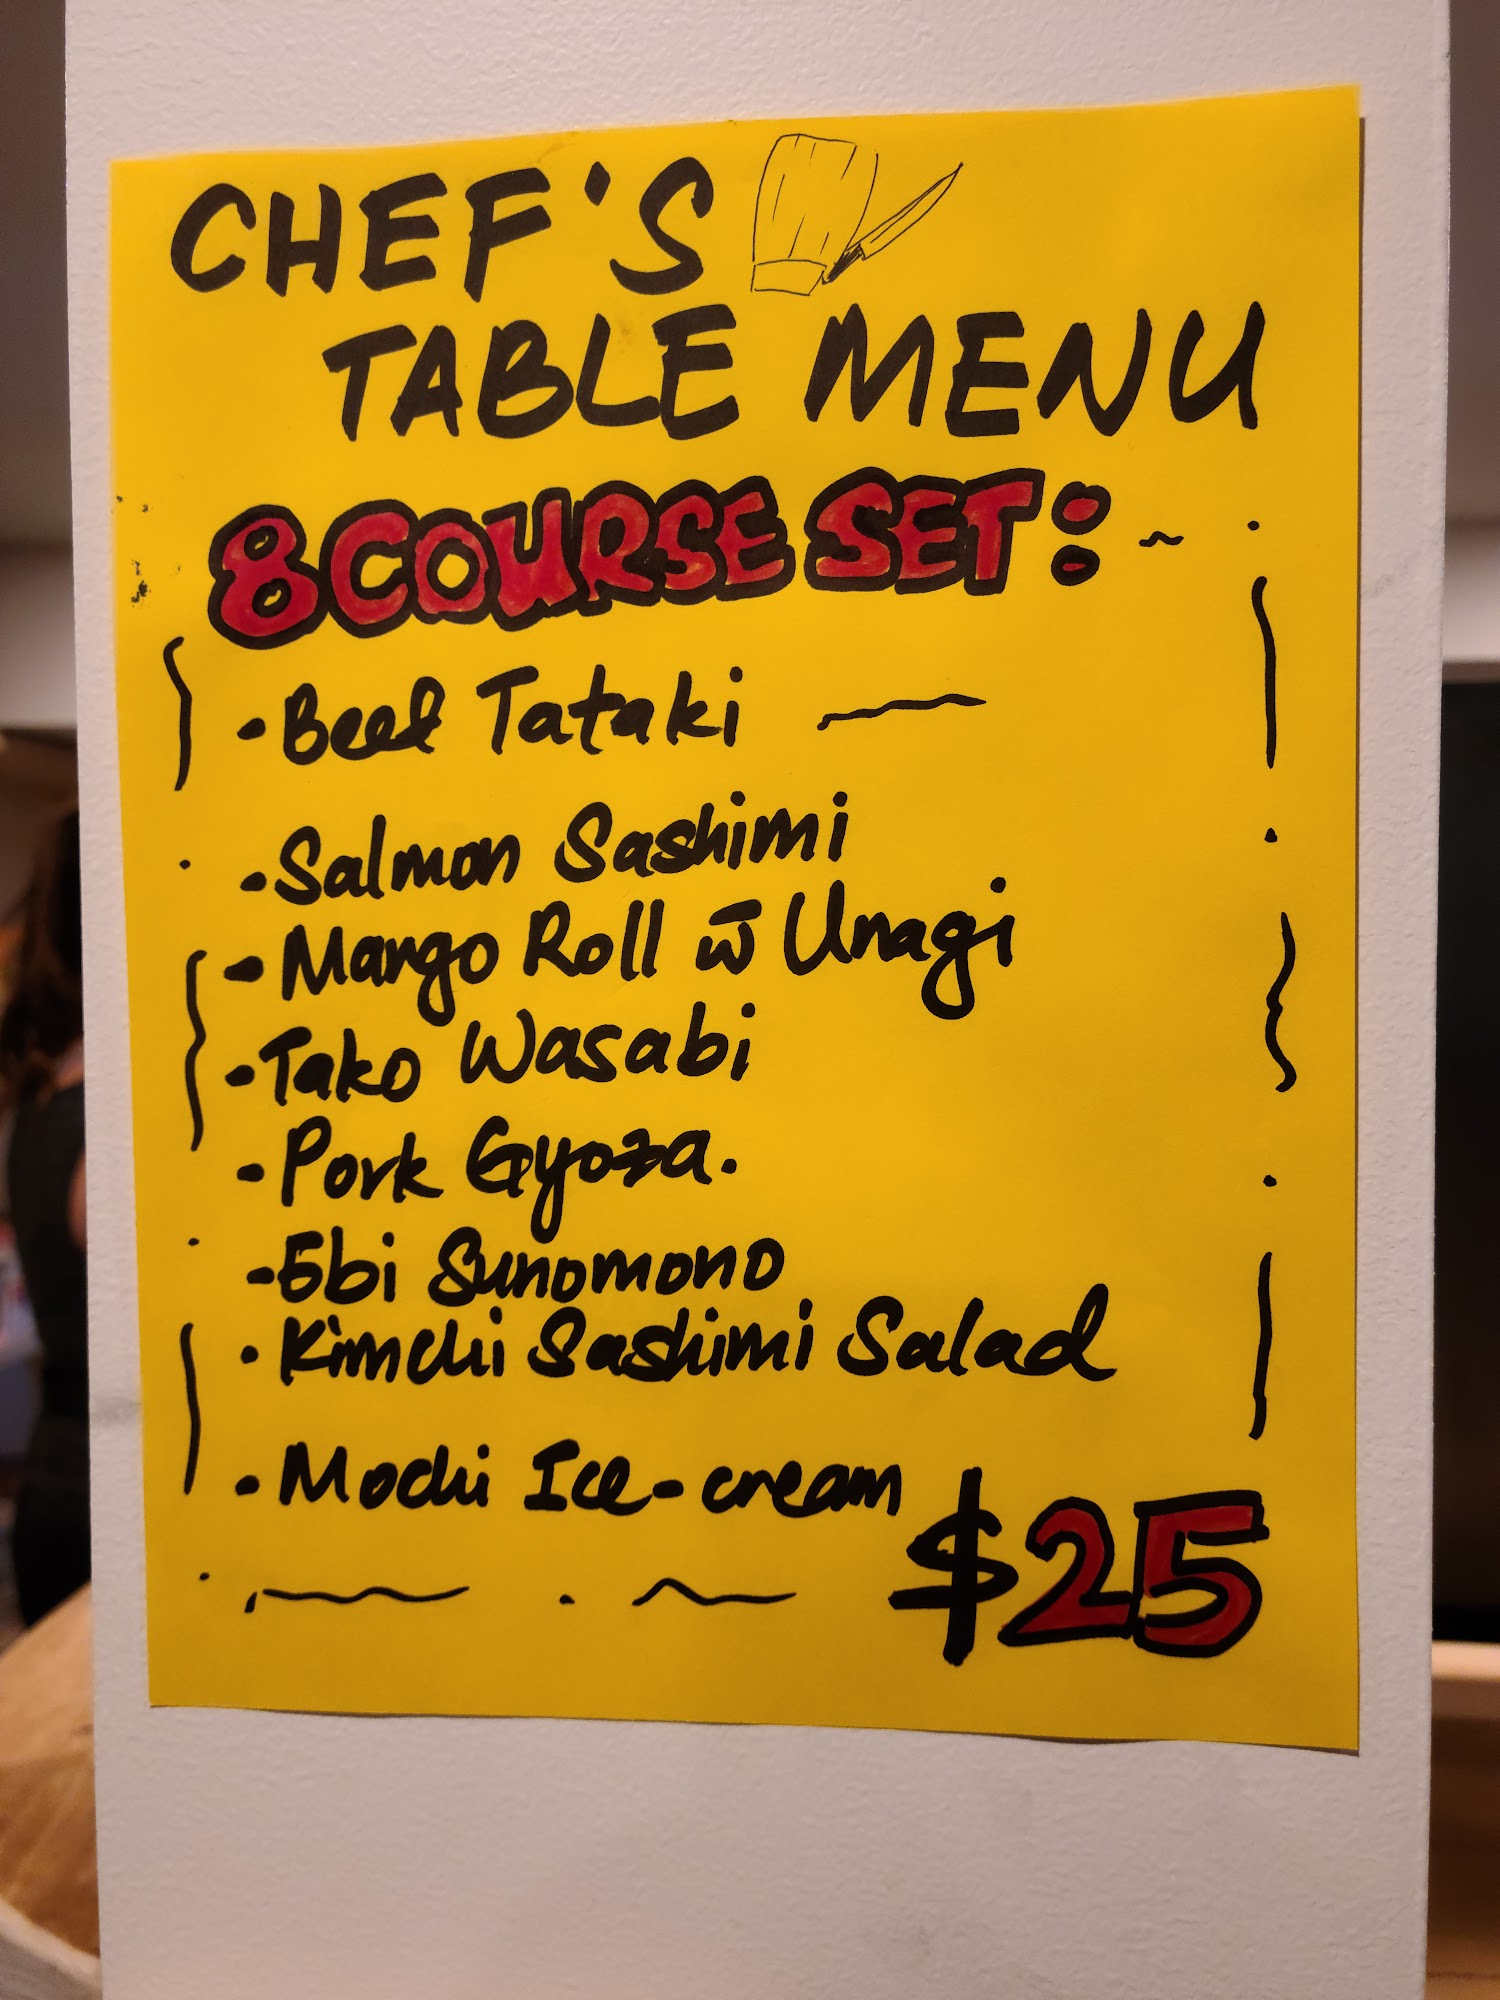 CHEF'S
TABLE MENU
8 COURSE SET:
• Beef Tataki
• Salmon Sashimi
• Mango Roll w̄ Unagi
• Tako Wasabi
• Pork Gyoza.
- Ebi Sunomono
• Kimchi Sashimi Salad
• Mochi Ice-cream
$25